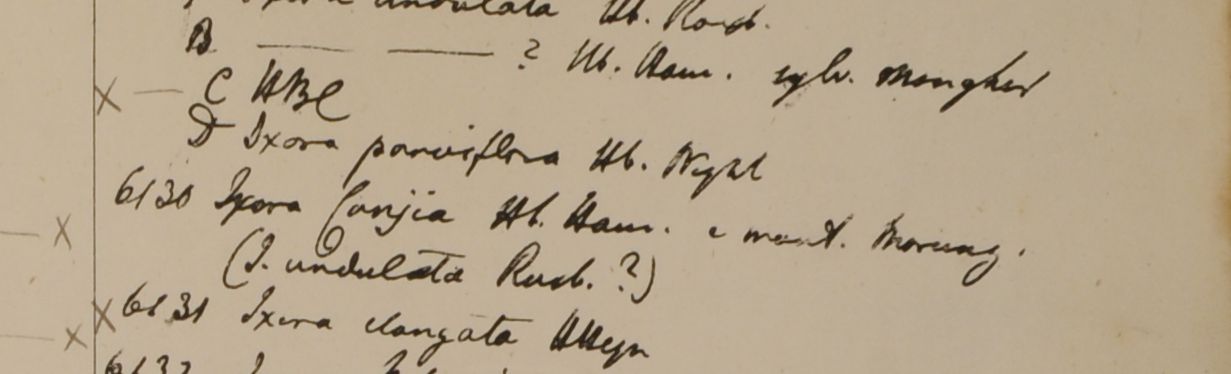 Ixora undulata Hb. Roxb.
B — — ? Hb. Ham. sylv. Mongher
X — C HBC
D Ixora parviflora Hb. Wight
— X 6130 Ixora Conjia Hb. Ham. e mont. Morung.
(I. undulata Roxb. ?)
X 6131 Ixora elongata HHeyn
— X
6132